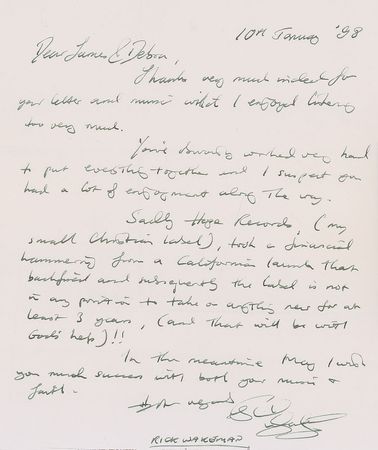 10th January '98
Dear James & Debra,
Thanks very much indeed for
your letter and music which I enjoyed listening
too very much.
You've obviously worked very hard
to put everything together and I suspect you
had a lot of enjoyment along the way.
Sadly Hope Records, (my
small Christian label), took a financial
hammering from a Californian launch that
backfired and subsequently the label is not
in any position to take on anything new for at
least 3 years, (and that will be with
God's help)!!
In the meantime May I wish
you much success with both your music &
faith.
regards
RICK WAKEMAN